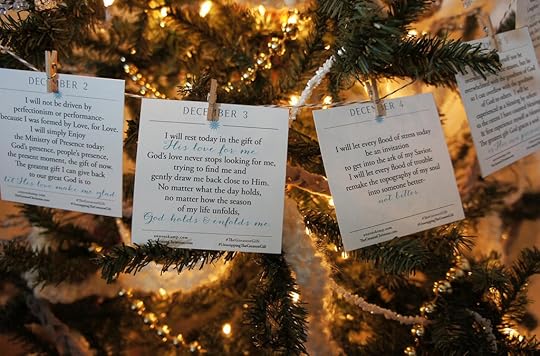 DECEMBER 2
I will not be driven by
perfectionism or performance-
because I was formed by Love, for Love.
I will simply Enjoy
the Ministry of Presence today:
God's presence, people's presence,
the present moment, the gift of now.
The greatest gift I can give back
to our great God is to
let His love make me glad
#TheGreatestGift
#UnwrappingTheGreatestGift
DECEMBER 3
I will rest today in the gift of
His love for me.
God's love never stops looking for me,
trying to find me and
gently draw me back close to Him.
No matter what the day holds,
no matter how the season
of my life unfolds,
God holds & enfolds me.
annvoskamp.com
#TheGreatestGift
#UnwrappingTheGreatestGift
DECEMBER 4
I will let every flood of stress today
be an invitation
to get into the ark of my Savior.
I will let every flood of trouble
remake the topography of my soul
into someone better-
not bitter.
annvoskamp.com
#TheGreatestGift
#UnwrappingTheGreatestGift